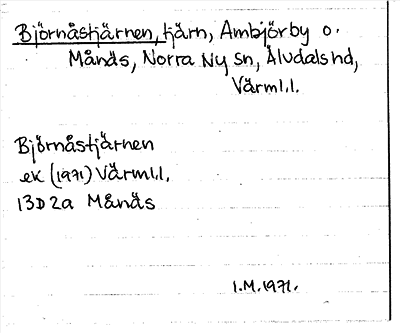 Björnåstjärnen, tjärn, Ambjörby o.
Månäs, Norra Ny sn, Älvdals hd,
Värml.l.
Björnåstjärnen
ek (1971) Värml.l.
13D 2a Månäs
I.M. 1971.